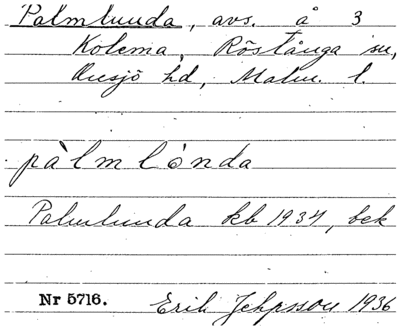 Palmlunda, avs. å 3
Kolema, Röstånga sn,
Onsjö hd, Malm. l.
pàlmlónda
Palmlunda kb 1934, bek
Nr 5716. Erik Jeppsson 1936